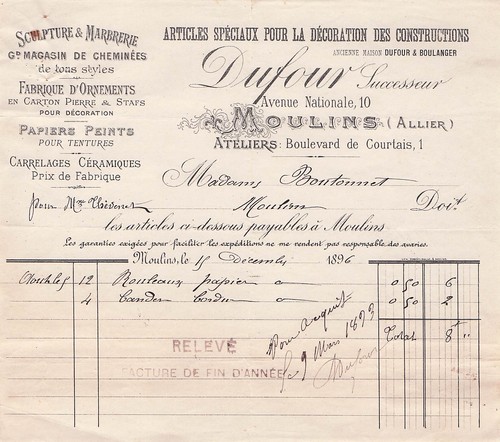 SCULPTURE & MARBRERIE
GD MAGASIN DE CHEMINÉES
de tous styles
FABRIQUE D'ORNEMENTS
EN CARTON PIERRE & STAFS
POUR DÉCORATION
PAPIERS PEINTS
POUR TENTURES
CARRELAGES CÉRAMIQUES
Prix de Fabrique
ARTICLES SPÉCIAUX POUR LA DÉCORATION DES CONSTRUCTIONS
ANCIENNE MAISON DUFOUR & BOULANGER
Dufour Successeur
Avenue Nationale, 10
MOULINS (ALLIER)
ATELIERS: Boulevard de Courtais, 1
Madame Boutonnet
pour Mme Moulins Doit
les articles ci-dessous payables à Moulins
Les garanties exigées pour faciliter les expéditions ne me rendent pas responsable des avaries.
Moulins, le 15 Décembre 1896
12 Rouleaux papier a 0 50 6
4 bordure a 0 50 2
Total 8 "
Pour acquit
le 9 Mars 1893
Dufour
RELEVÉ
FACTURE DE FIN D'ANNÉE